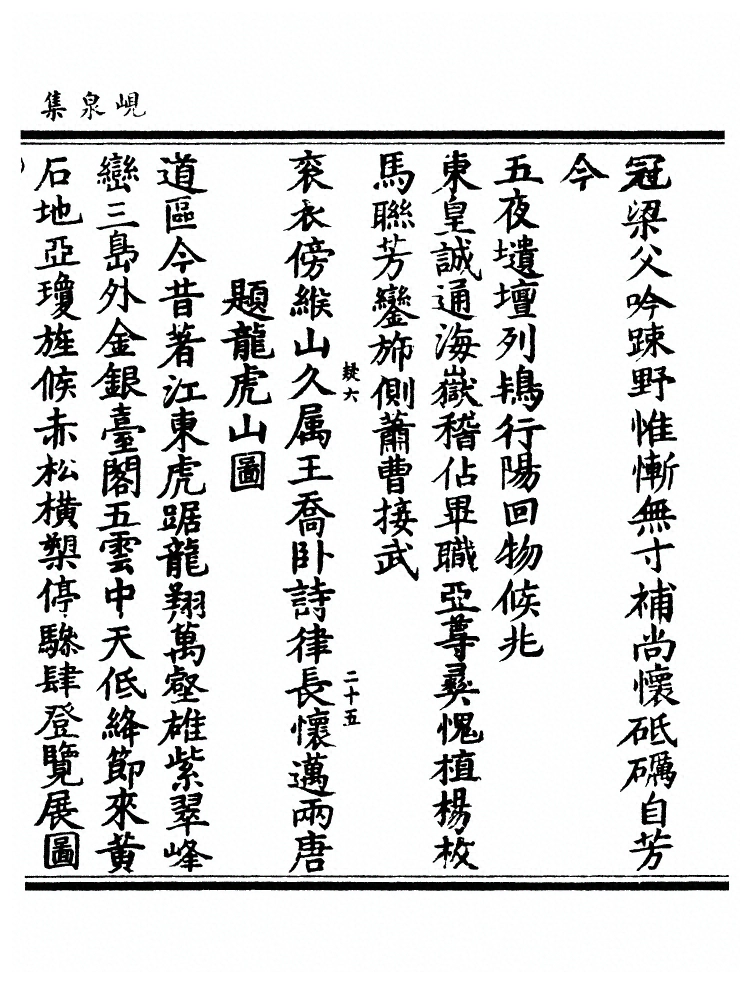 峴泉集
冠梁父吟踈野惟慚無寸補尚懷砥礪自芳
今
五夜壝壇列鵷行陽回物候兆
東皇誠通海嶽稽佔畢職亞尊彛愧植楊枚
馬聯芳鑾斾側蕭曹接武
衮衣傍緱山久属王喬卧詩律長懷邁兩唐
疑六
二十五
題龍虎山圖
道區今昔著江東虎踞龍翔萬壑雄紫翠峰
巒三島外金銀臺閣五雲中天低絳節來黄
石地亞瓊旌候赤松橫槊停驂肆登覽展圖